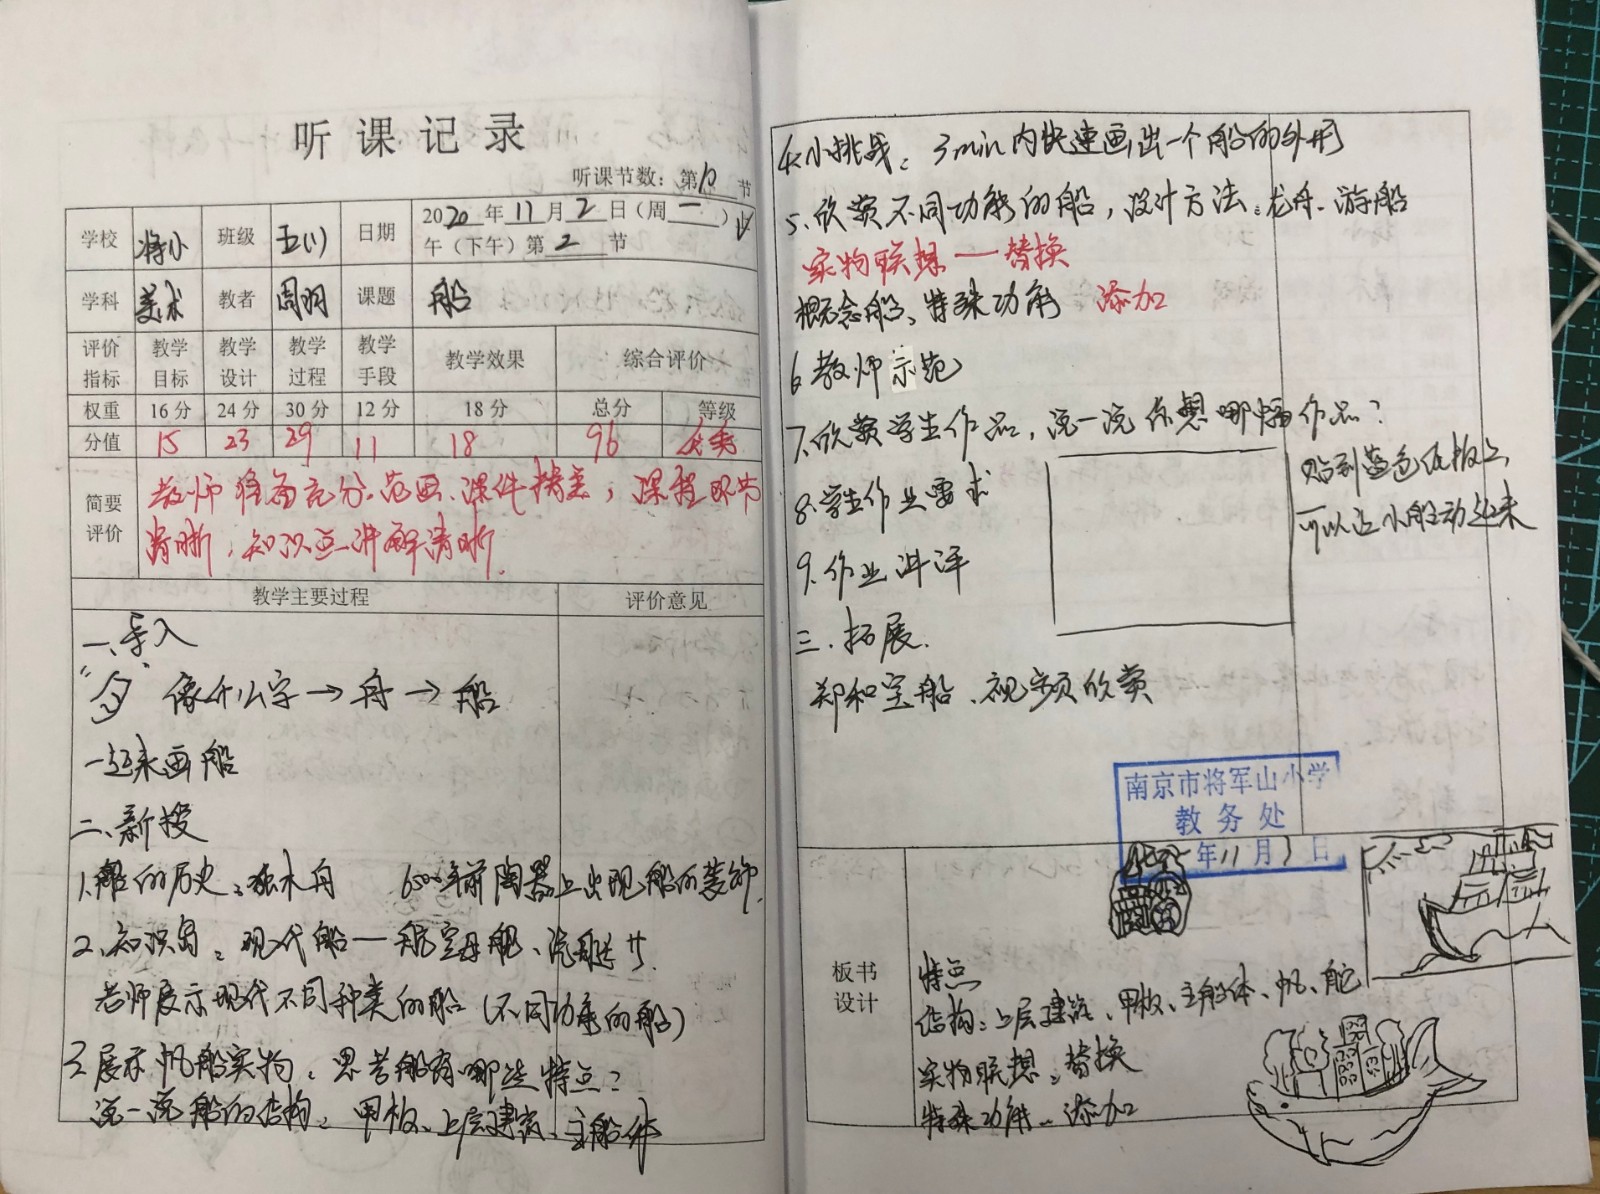 听课记录
听课节数：第10节
学校 将小 班级 五(1) 日期 2020年11月2日（周一）下午（下午）第2节
学科 美术 教者 周羽 课题 船
评价指标 教学目标 教学设计 教学过程 教学手段 教学效果 综合评价
权重 16分 24分 30分 12分 18分 总分 等级
分值 15 23 29 11 18 96 优秀
简要评价 教师准备充分，范画、课件精美，课程环节
清晰，知识点讲解清晰。
教学主要过程 评价意见
一、导入
像什么字→舟→船
一起来画船
二、新授
1.船的历史：独木舟 6500年前陶器上出现船的装饰.
2、知识窗：现代船—航空母舰、汽艇
老师展示现代不同种类的船（不同功能的船）
3 展示帆船实物，思考船有哪些特点？
说一说船的结构：甲板、上层建筑、主船体
4.小挑战：3min内快速画出一个船的外形
5.欣赏不同功能的船，设计方法：龙舟、游船
实物联想—替换
概念船、特殊功能 添加
6 教师示范
7.欣赏学生作品，说一说你想哪幅作品？
贴到蓝色纸板上，
可以让小船动起来
8.学生作业要求
9.作业讲评
三.拓展.
郑和宝船、视频欣赏
南京市将军山小学
教务处
年11月 日
板书设计
特点
结构：上层建筑、甲板、主船体、帆、舵
实物联想：替换
特殊功能：添加